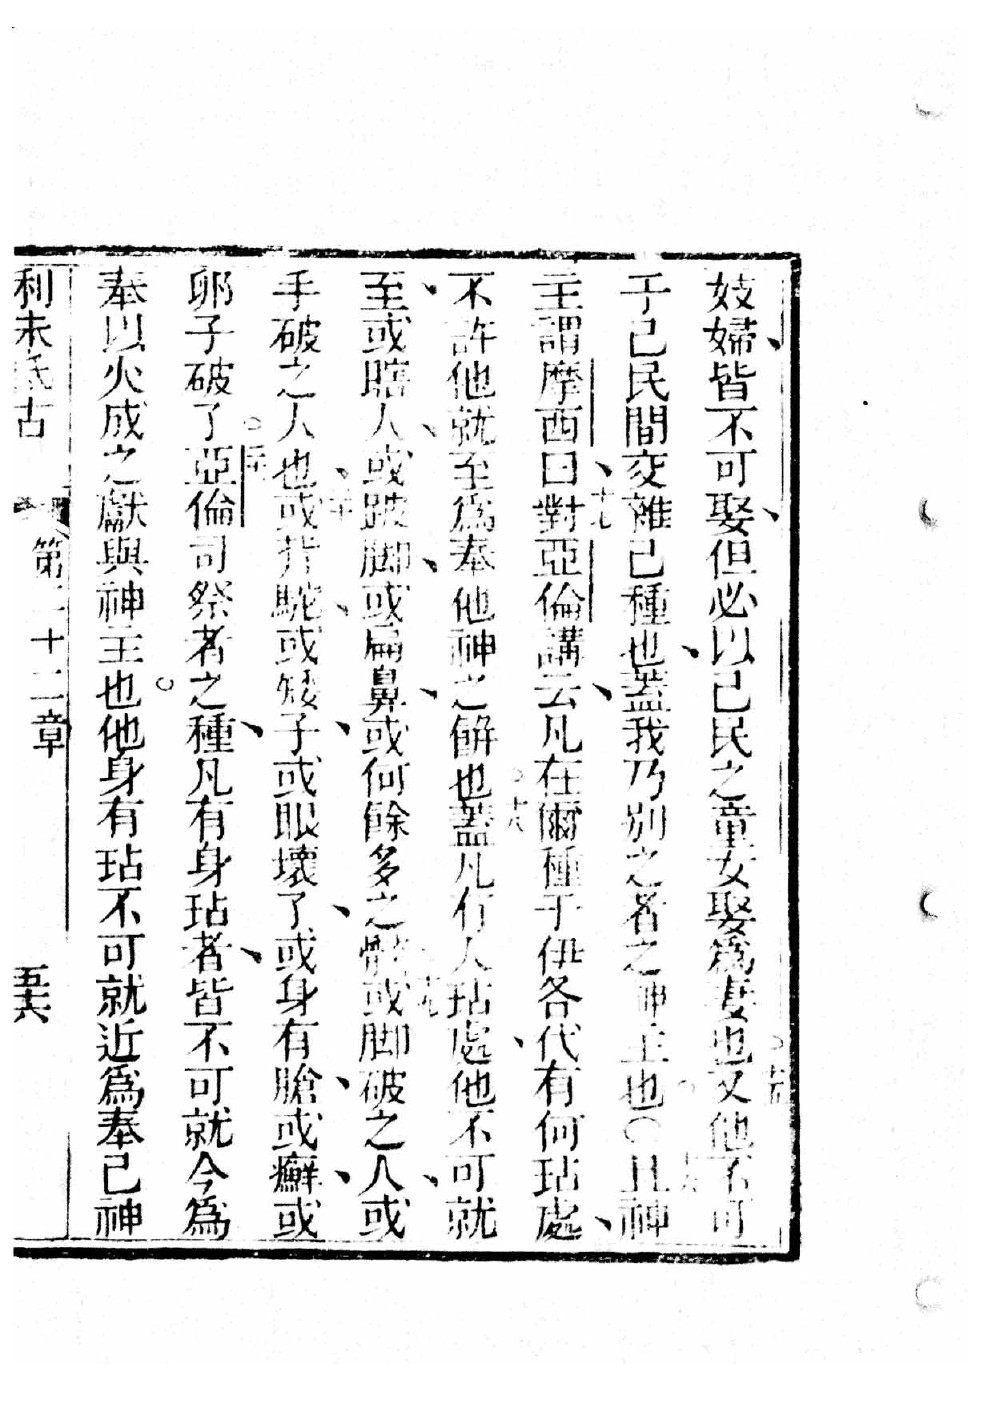 妓婦皆不可娶但必以己民之童女娶為妻也十五又他不可
于己民間交雜己種也蓋我乃別之者之神主也○十六且神
主謂摩西曰十七對亞倫講云凡在爾種于伊各代有何玷處
不許他就至為奉他神之餅也十八蓋凡有人玷處他不可就
至或瞎人或跛脚或扁鼻或何餘多之體十九或脚破之人或
手破之人也二十或背駝或矮子或眼壞了或身有膾或癬或
卵子破了二一亞倫司祭者之種凡有身玷者皆不可就今為
奉以火成之獻與神主也他身有玷不可就近為奉己神
利未氏古 第二十二章 五六